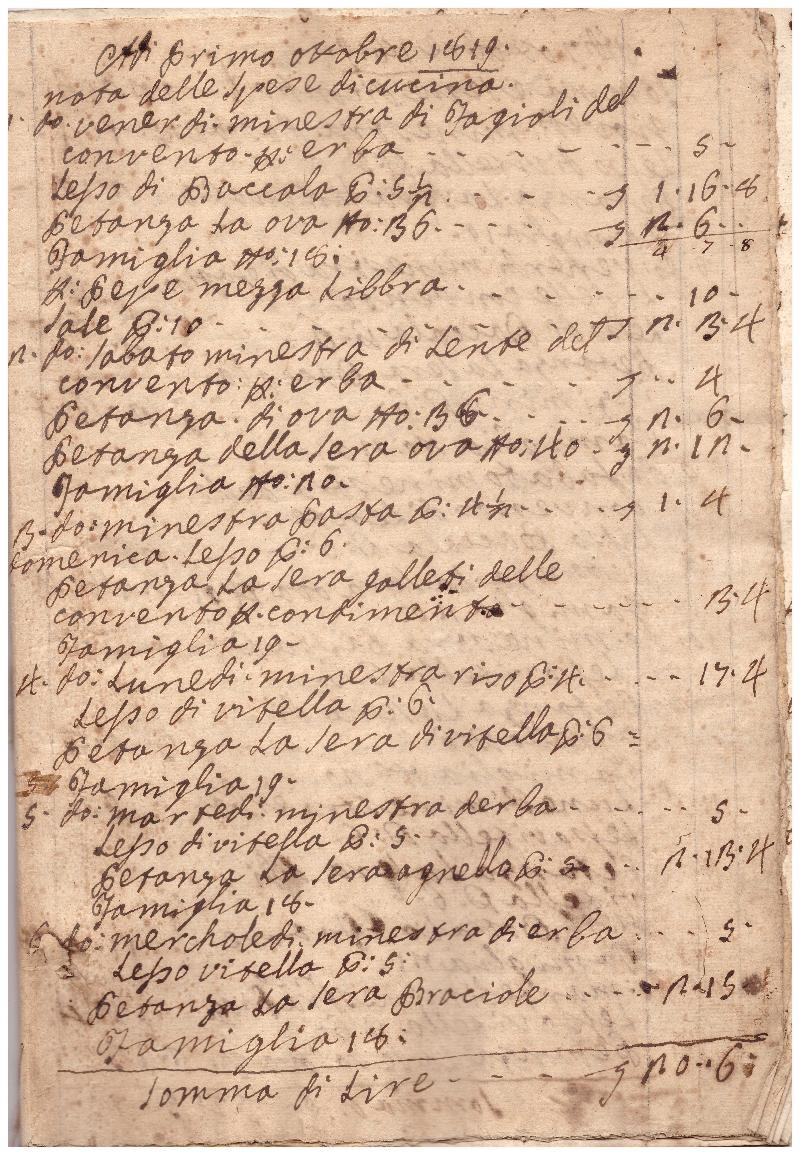 Adi primo ottobre 1819.
nota delle spese di cucina.
1. do: venerdi: minestra di fagioli del
convento. p: erba - - - - - - 5 -
Lesso di Baccala p: 5½ - - - - 1. 16. 8
petanza La ova No: 36. - - - - 2. 6.
4 7 8
Famiglia No: 18:
p: pepe mezza Libbra - - - - - 10 -
Sale p: 10 - - - - 2. 3. 4
2. do: sabato minestra di Lente del
convento: p: erba - - - - - 4
petanza. di ova No: 36. - - - - 2. 6 -
petanza della sera ova No: 40 - 2. 12 -
Famiglia No: 20.
3. do: minestra pasta p: 4½ - - 1. 4
domenica. Lesso p: 6.
petanza La sera galleti delle
convento p. condimento - - - - 13. 4
Famiglia 19 -
4. do: Lunedi. minestra riso p: 4. - - - 17. 4
Lesso di vitella p: 6
petanza La sera di vitella p: 6 =
5 Famiglia 19 -
5. do: martedi. minestra derba - - - 5 -
Lesso di vitella p: 5 -
petanza La sera agnella p: 5 - - - 2. 13. 4
Famiglia 18 -
6 do: mercholedi. minestra di erba - - - 5 -
Lesso vitella p: 5
petanza La sera Braciole - 2. 15
Famiglia 18:
Somma di Lire - - - - 20. - 6: